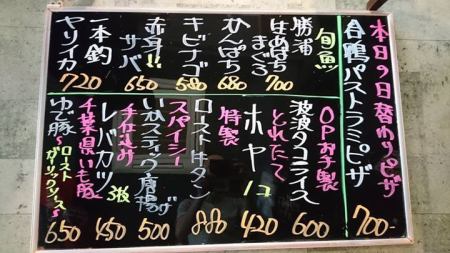 本日の日替わりピザ
合鴨パストラミピザ 700-
旬魚
勝浦
はえばち
まぐろ 700
かんぱち 680
キビナゴ 580
赤身!!
サバ 650
一本釣
ヤリイカ 720
OPお手製
波波タコライス 600
とれたて
ホヤ 1コ 420
特製
ロースト牛タン 880
スパイシー
いかスティック唐揚げ 500
手仕込み
レバカツ 3枚 450
千葉県いも豚
ゆで豚 ローストガーリックソース 650